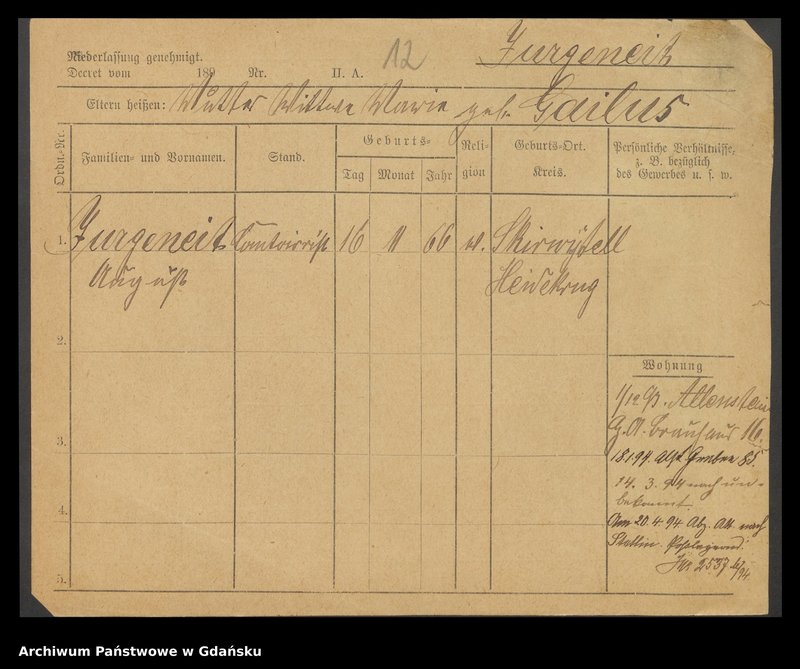 12
Jurgeneit
Niederlassung genehmigt.
Decret vom 189 Nr. II. A.
Eltern heißen: Mutter Wittwe Marie geb. Gailus
Ordn.-Nr.
Familien- und Vornamen.
Stand.
Geburts-
Tag Monat Jahr
Reli-
gion
Geburts-Ort.
Kreis.
Persönliche Verhältnisse,
z. B. bezüglich
des Gewerbes u. s. w.
1. Jurgeneit Comtoirist 16 11 66 ev. Skirwytell
August Heidekrug
2.
3.
4.
5.
Wohnung
1/12 93. Allenstein
G. A. Brauhaus 16.
18.1.94. Altst. Graben 85.
14. 3. 94 nach un-
bekannt.
Am 20. 4 94 Abg. Att. nach
Stettin.
Nr 2537
Archiwum Państwowe w Gdańsku